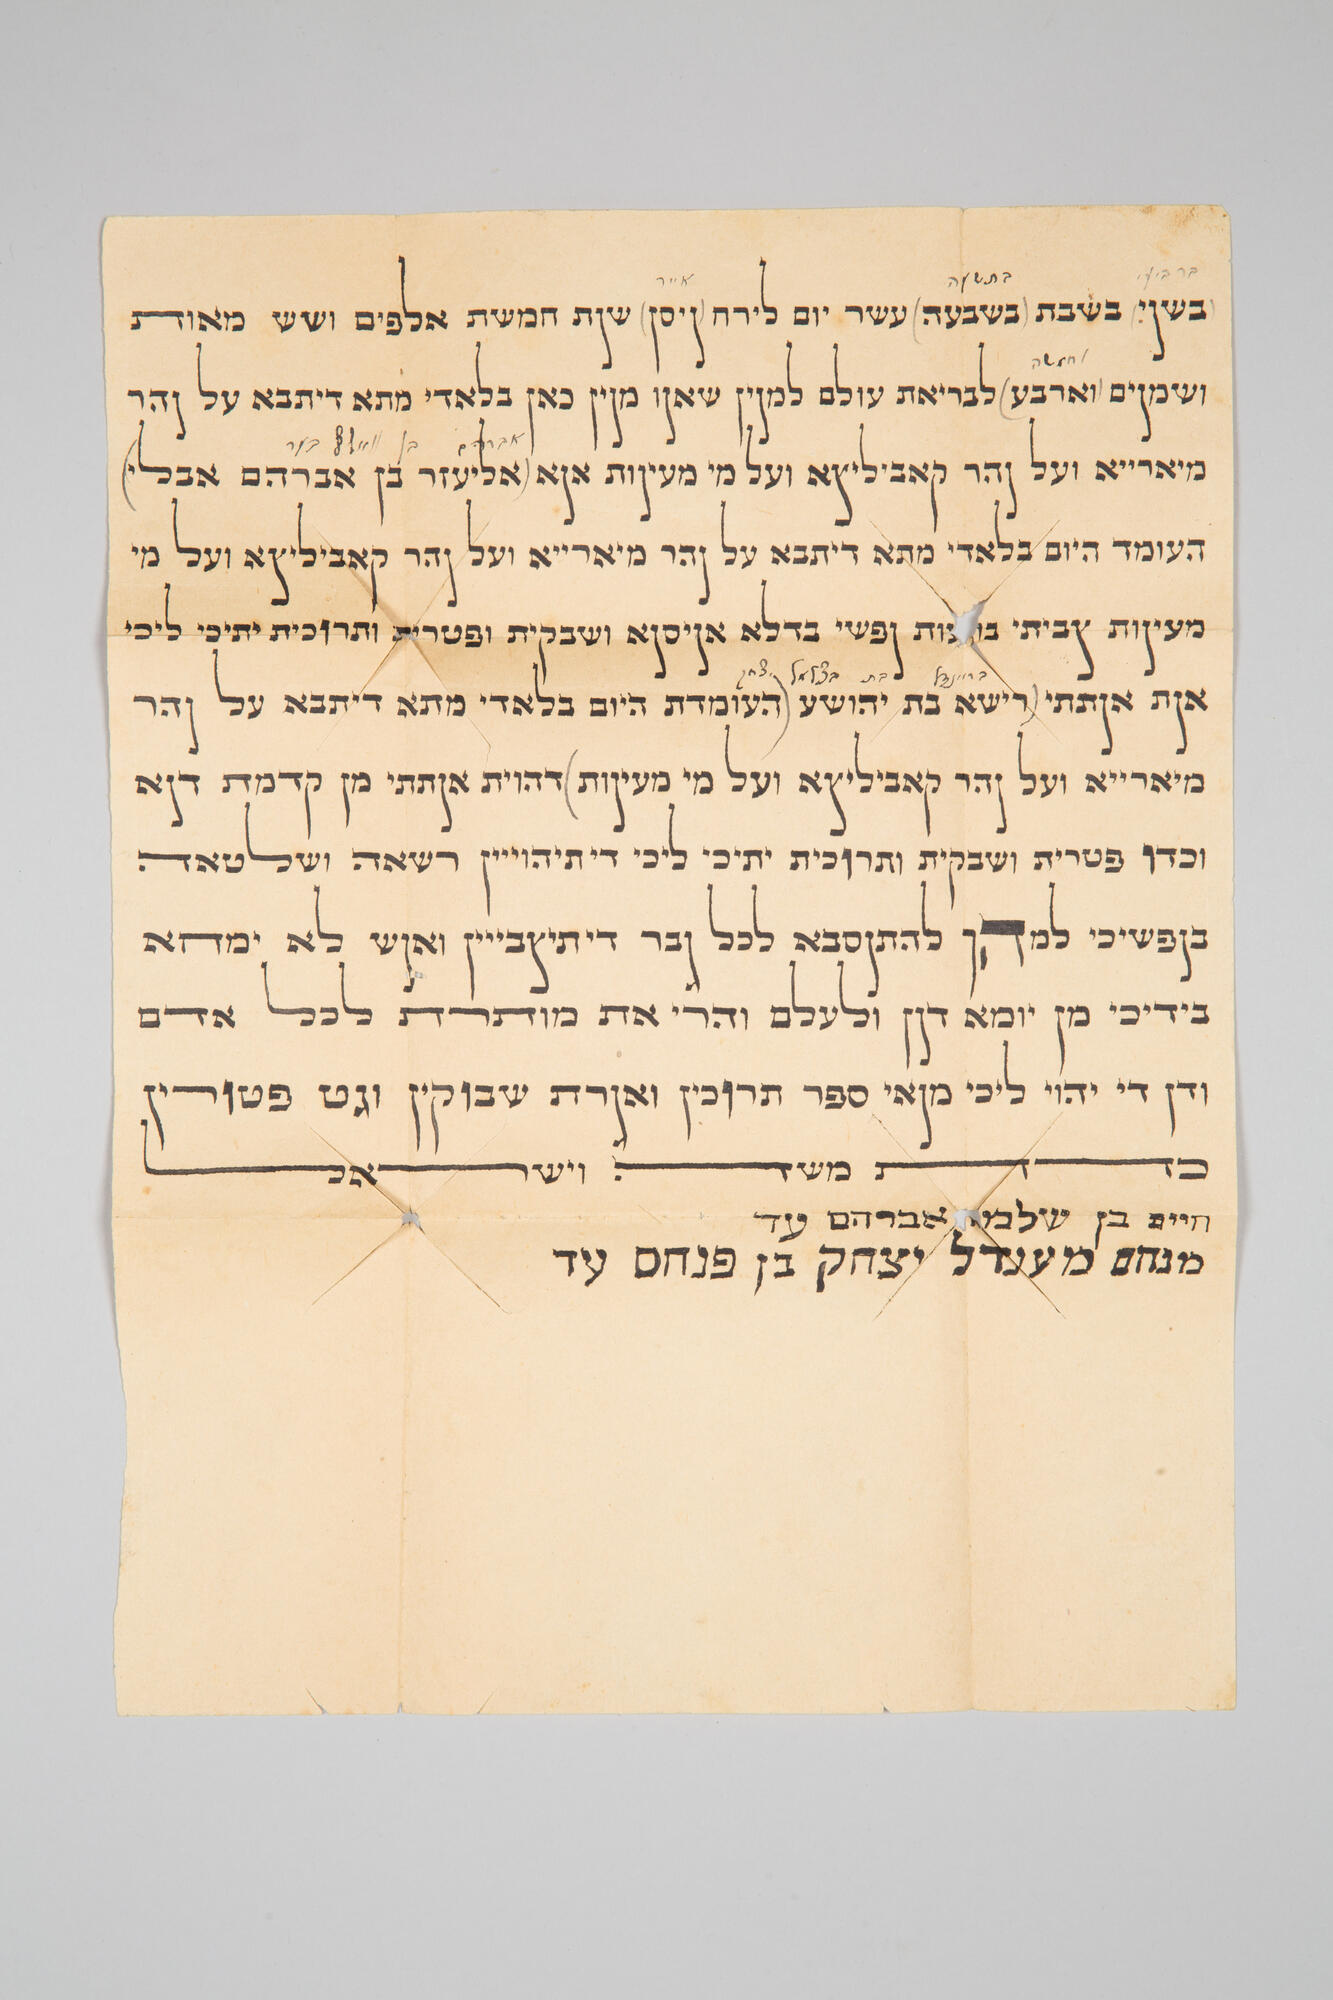 ברביעי בתשעה אייר
(בשני) בשבת (בשבעה) עשר יום לירח (ניסן) שנת חמשת אלפים ושש מאות
וחמשה
ושמנים (וארבע) לבריאת עולם למנין שאנו מנין כאן בלאדי מתא דיתבא על נהר
אברהם בן
מיארייא ועל נהר קאביליצא ועל מי מעינות אנא (אליעזר בן אברהם אבלי)
העומד היום בלאדי מתא דיתבא על נהר מיארייא ועל נהר קאביליצא ועל מי
מעינות צביתי נפשי בדלא אניסנא ושבקית ופטרית ותרוכית יתיכי ליכי
בריינדל בת בצלאל יצחק
אנת אנתתי (רישא בת יהושע (העומדת היום בלאדי מתא דיתבא על נהר
מיארייא ועל נהר קאביליצא ועל מי מעינות) דהוית אנתתי מן קדמת דנא
וכדו פטרית ושבקית ותרוכית יתיכי ליכי דיתיהוייין רשאה ושלטאה
בנפשיכי למהך להתנסבא לכל גבר דיתיצבייין ואנש לא ימחא
בידיכי מן יומא דנן ולעלם והרי את מותרת לכל אדם
ודן די יהוי ליכי מנאי ספר תרוכין ואגרת שבוקין וגט פטורין
כדת משה וישראל
חיים בן שלמה אברהם עד
מנחם מענדל יצחק בן פנחס עד